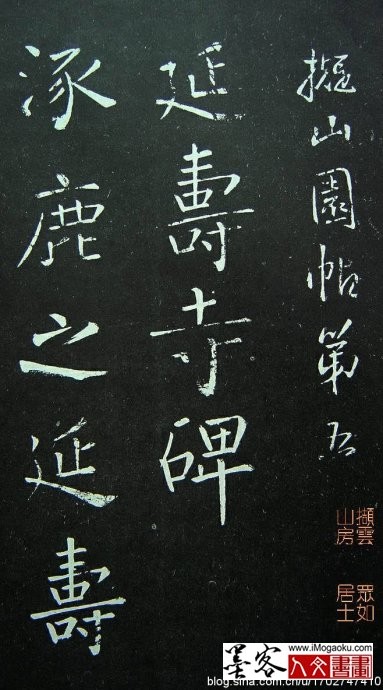 擬山園帖第五
延壽寺碑
涿鹿之延壽
擷雲山房
眾如居士
www.iMogaoku.com
墨客人文書畫
blog.sina.com.cn/u/1702747410